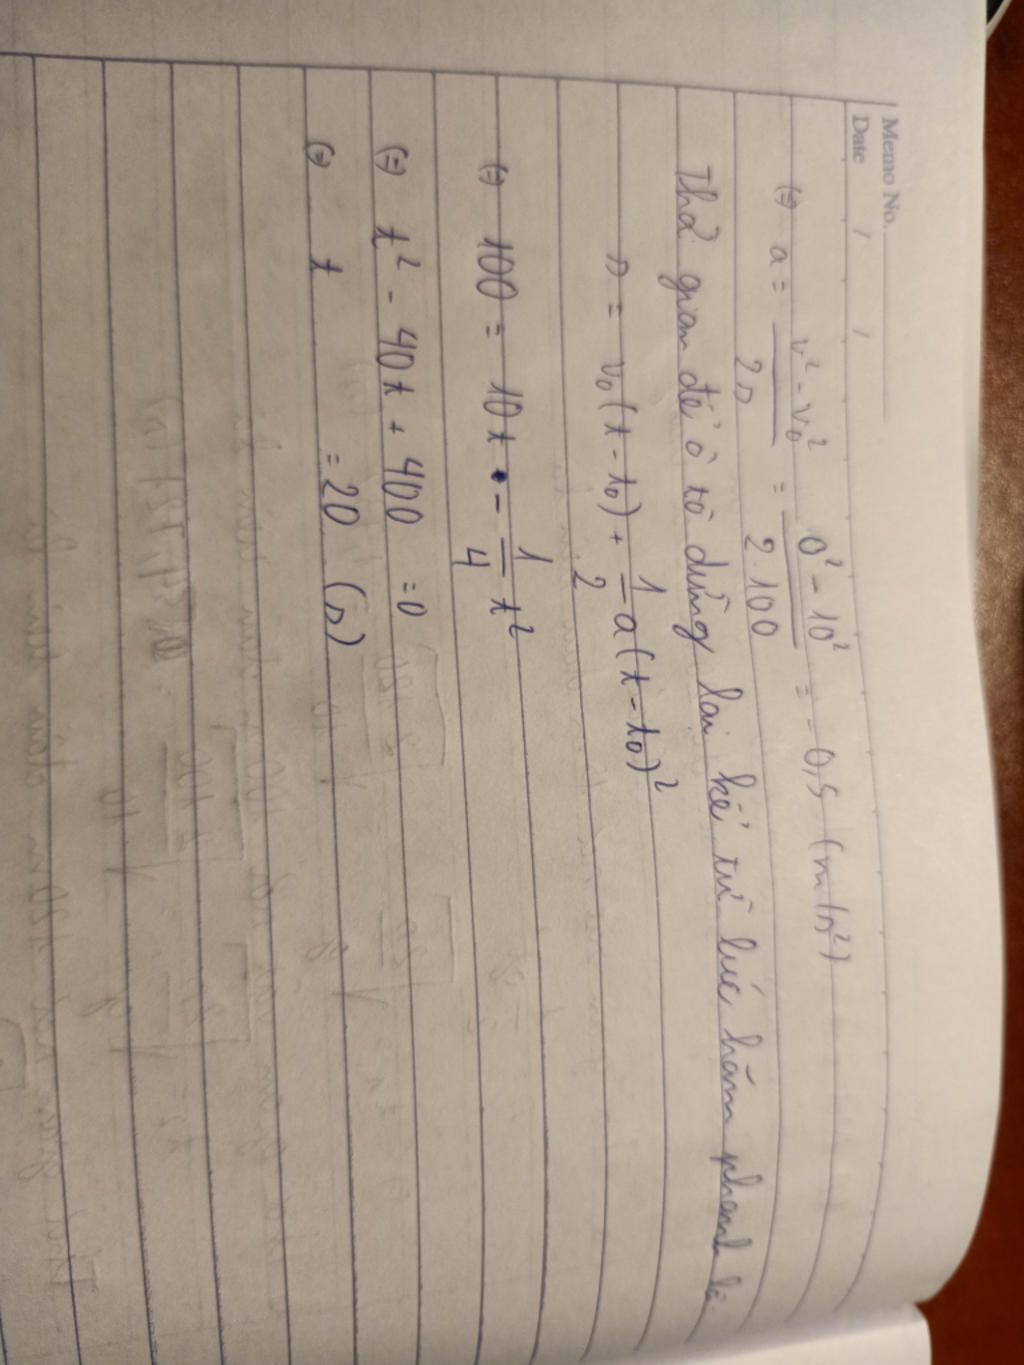 Memo No.
Date / /
(=) a = (v² - v₀²)/(2s) = (0² - 10²)/(2.100) = -0,5 (m/s²)
Thời gian để ô tô dừng lại kể từ lúc hãm phanh là
s = v₀(t - t₀) + 1/2 a(t - t₀)²
(=) 100 = 10t - 1/4 t²
(=) t² - 40t + 400 = 0
(=) t = 20 (s)